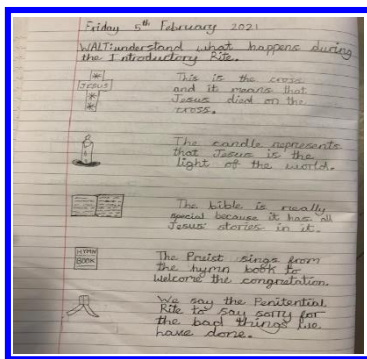 Friday 5th February 2021
WALT: understand what happens during
the Introductory Rite.
JESUS
This is the cross
and it means that
Jesus died on the
cross.
The candle represents
that Jesus is the
light of the world.
The bible is really
special because it has all
Jesus' stories in it.
HYMN
BOOK
The Preist sings from
the hymn book to
welcome the congretation.
We say the Penitential
Rite to say sorry for
the bad things we
have done.